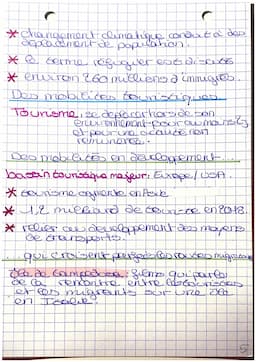 * changement climatique conduit à des
déplacement de population.
* le terme réfugier est à
* environ 260 millions d'immigrés.
Des mobilités touristiques.
Tourisme : se déplacer hors de son
environnement pour au moins
et pour une cause non
rémunérée.
Des mobilités en développement...
bassin touristique majeur: Europe/USA.
* tourisme augmente en Asie
* 1,2 milliard de touriste en 2018.
* relier au développement des moyens
de transports.
... qui croisent parfois les routes migratoires
île de Lampedusa: films qui parle
de la rencontre entre les touristes
et les migrants sur une île
en Italie.
5